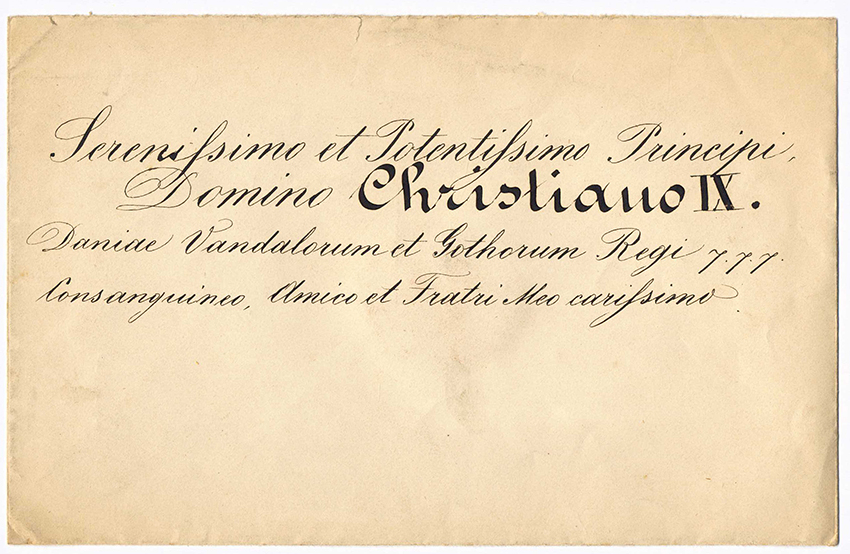 Sereniſsimo et Potentiſsimo Principi,
Domino Christiano IX.
Daniae Vandalorum et Gothorum Regi 7.7.7.
Consanguineo, Amico et Fratri Meo cariſsimo